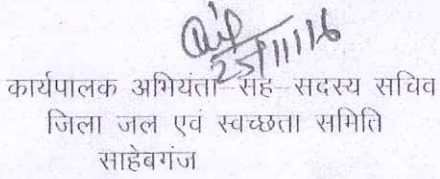 25/11/16
कार्यपालक अभियंता-सह-सदस्य सचिव
जिला जल एवं स्वच्छता समिति
साहेबगंज